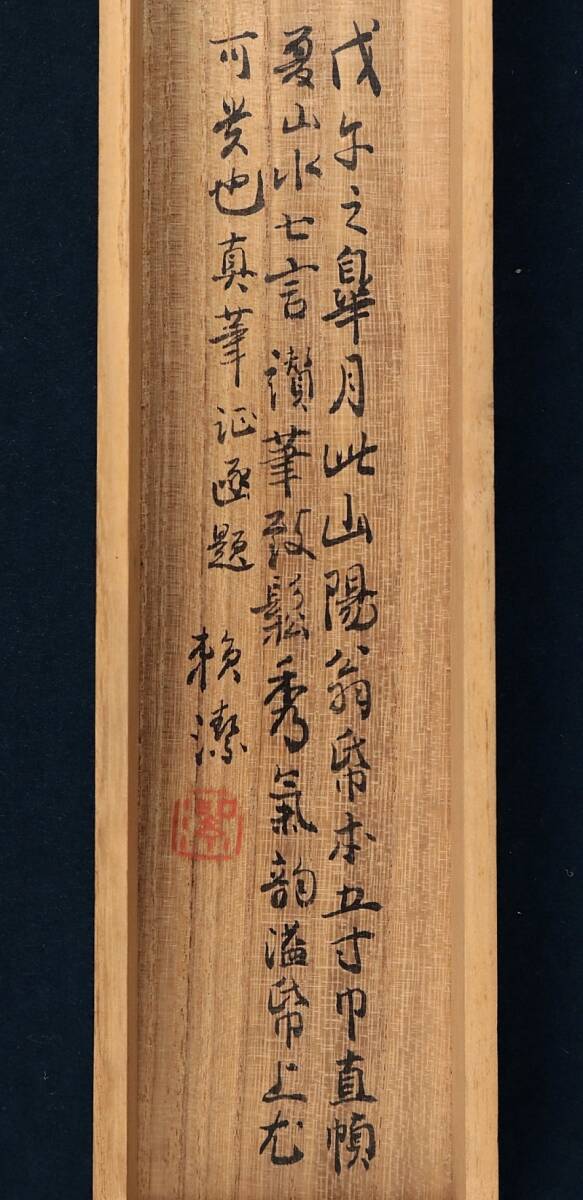 戊午之皐月此山陽翁帋本五寸巾直幀
夏山水七言讃筆致鬆秀氣韵溢帋上尤
可貴也真筆证函題
頼潔
潔